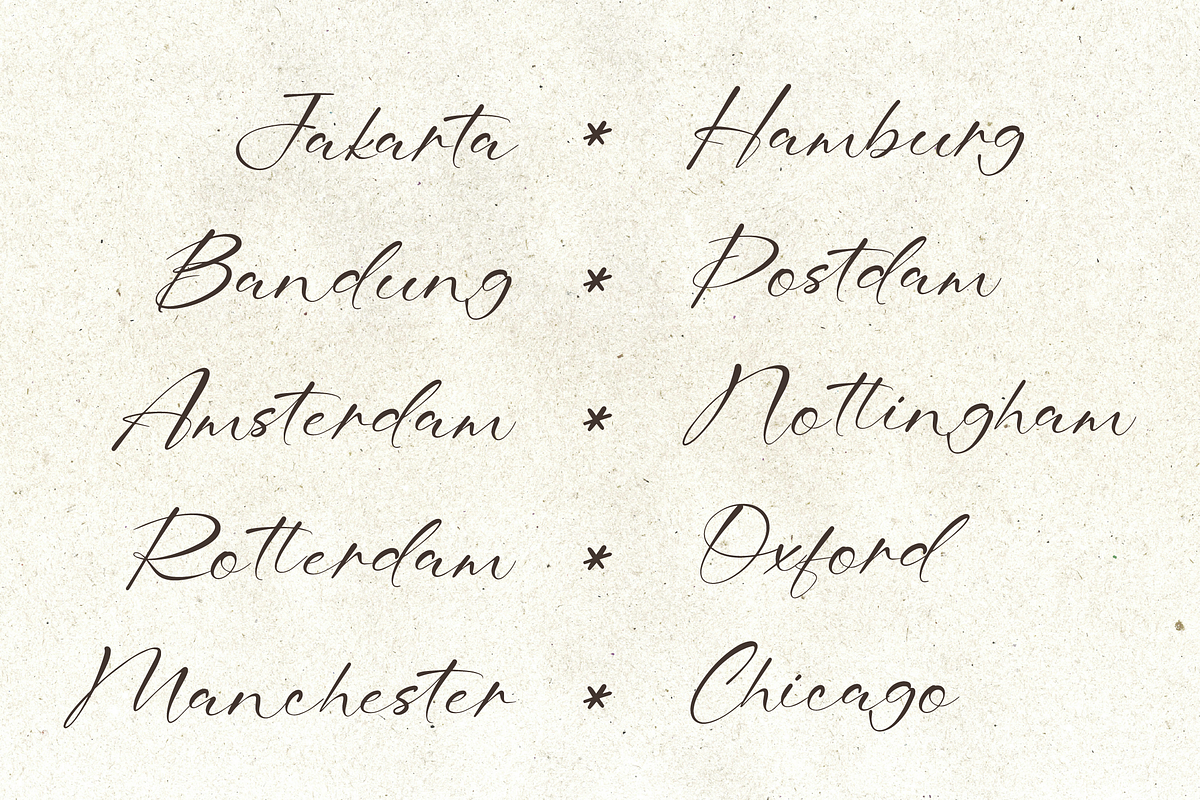 Jakarta * Hamburg
Bandung * Postdam
Amsterdam * Nottingham
Rotterdam * Oxford
Manchester * Chicago